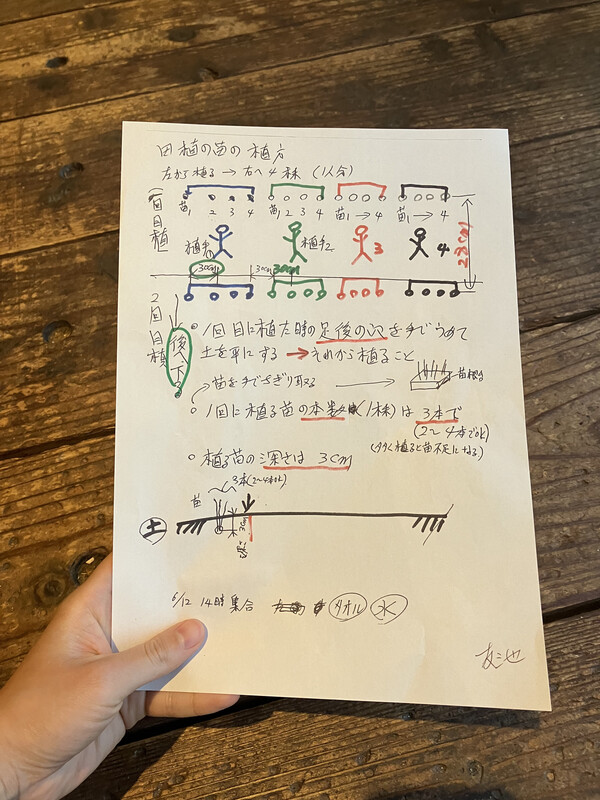 田植の苗の植方
左から植る → 右へ4株 (1人分)
一回目植
苗1 2 3 4
苗1 2 3 4
苗1 → 4
苗1 → 4
植手1
植手2
3
4
30cm
30cm
30cm
2回目植
後へ下る
○ 1回目に植た時の足後の穴を手でうめて
土を平にする → それから植ること
苗を手でちぎり取る →
○ 1回に植る苗の本数(1株)は3本で
(2〜4本でok)
(多く植ると苗不足になる)
○ 植る苗の深さは 3cm
3本(2〜4本ok)
苗
土
6/12 14時集合
タオル
水